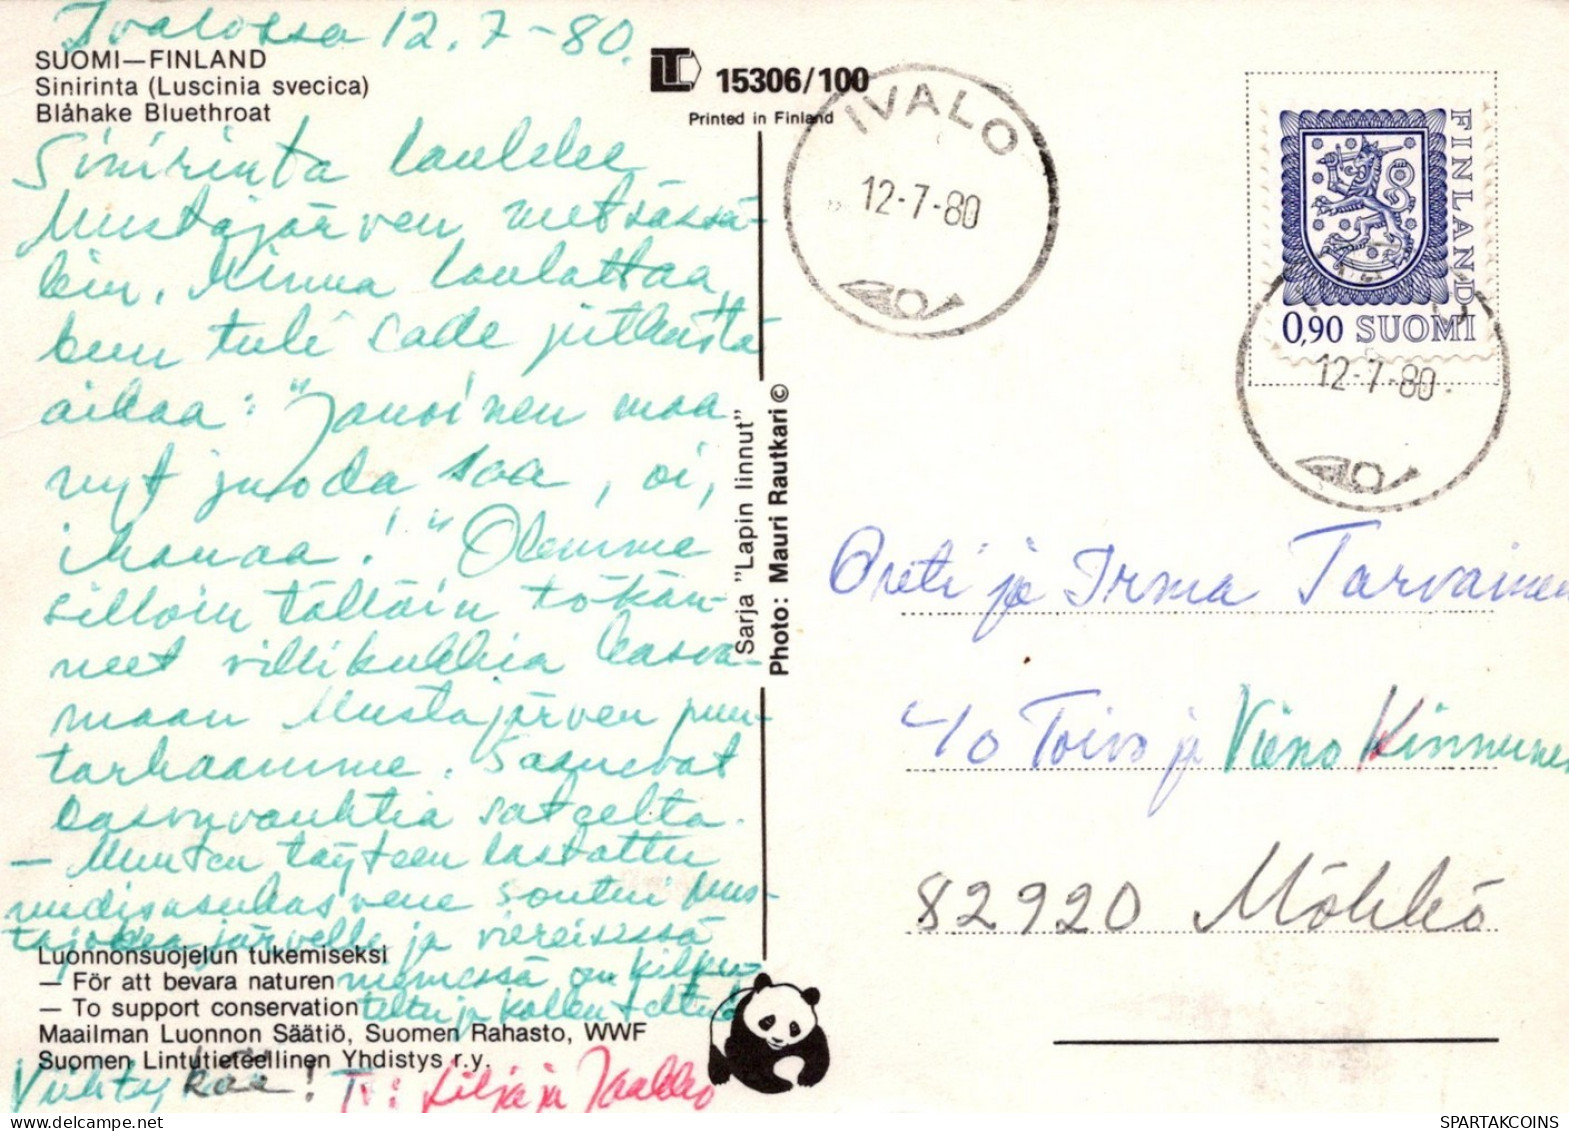 Ivalossa 12.7-80.
SUOMI—FINLAND
Sinirinta (Luscinia svecica)
Blåhake Bluethroat
LT 15306/100
Printed in Finland
Sinirinta laulelee
Mustajärven metsässä-
kin. Minna laulattaa,
kun tuli sade pitkästä
aikaa: "Janoinen maa
nyt juoda saa, oi,
ihanaa!" Olemme
silloin tällöin tökän-
neet villikukkia kasva-
maan Mustajärven puu-
tarhaamme. Saanevat
kasvuvauhtia sateelta.
— Muuten täyteen lastattu
uudisasukasvene souteli Mus-
tajokea järvelle ja viereisessä
niemessä on kilpu-
teltu ja
Luonnonsuojelun tukemiseksi
— För att bevara naturen
— To support conservation
Maailman Luonnon Säätiö, Suomen Rahasto, WWF
Suomen Lintutieteellinen Yhdistys r.y.
Viihtykää! T: Lilja ja Jaakko
Sarja "Lapin linnut"
Photo: Mauri Rautkari ©
IVALO
12-7-80
FINLAND
0,90 SUOMI
12-7-80
Oreti ja Irma Tarvainen
c/o Toivo ja Vieno Kinnunen
82920 Möhkö
SPARTAKCOINS